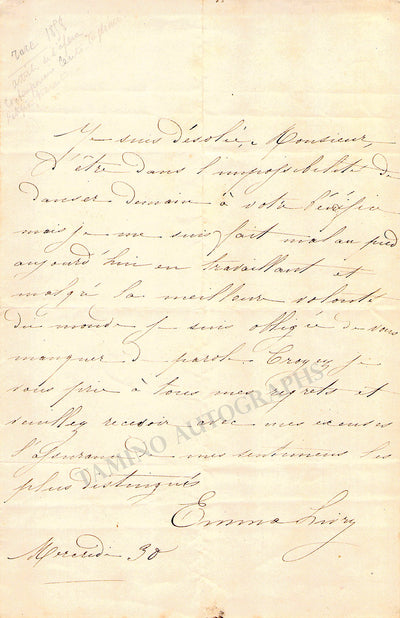 rare
Je suis désolée, Monsieur,
d'être dans l'impossibilité de
danser demain à votre bénéfice
mais je me suis fait mal au pied
aujourd'hui en travaillant et
malgré la meilleure volonté
du monde je suis obligée de vous
manquer de parole. Croyez, je
vous prie à tous mes regrets et
veuillez recevoir avec mes excuses
l'assurance de mes sentimens les
plus distingués
Emma Livry
Mercredi 30
TAMINO AUTOGRAPHS